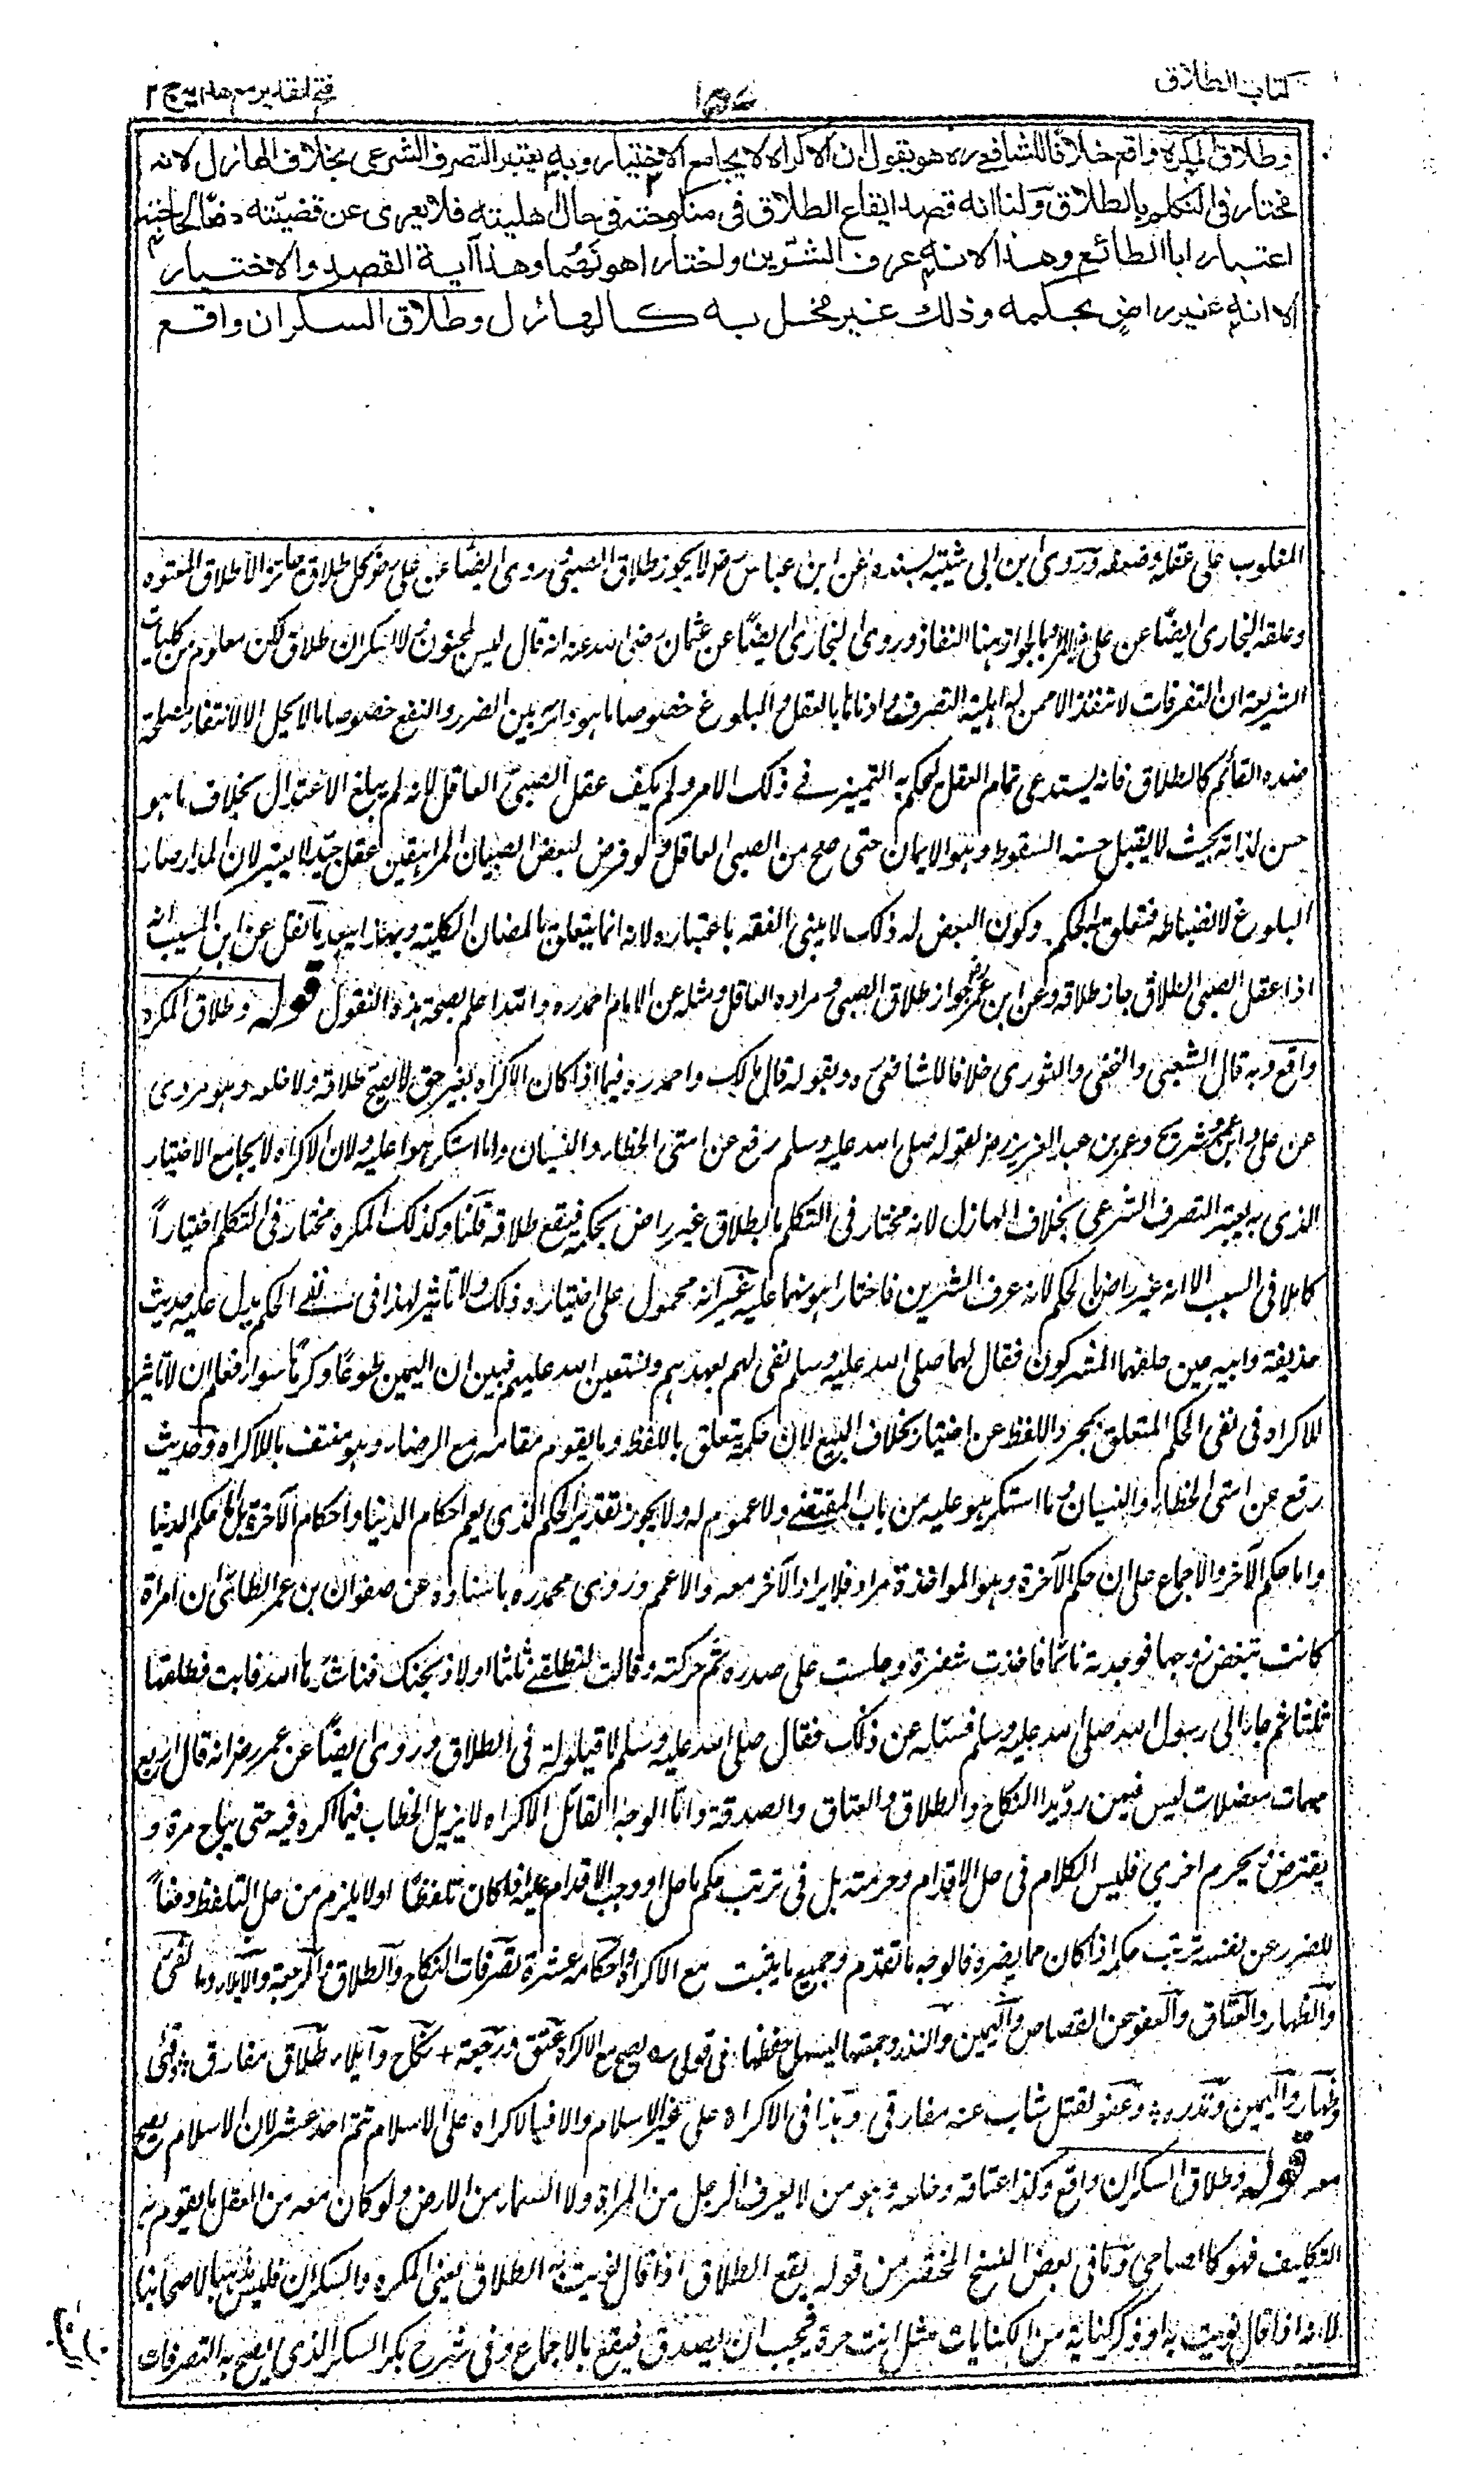 كتاب الطلاق
فتح القدير مع هدايه ج ٢
وطلاق المكره واقع خلافا للشافعي ره هو يقول ان الاكراه لا يجامع الاختيار وبه يعتبر التصرف الشرعي بخلاف الهازل لانه
مختار في التكلم بالطلاق ولنا انه قصد ايقاع الطلاق في منكوحته في حال اهليته فلا يعرى عن قضيته دفعا لحاجته
اعتبارا بالطائع وهذا لانه عرف الشرين واختار اهونهما وهذا آية القصد والاختيار
الا انه غير راض بحكمه وذلك غير مخل به كالهازل وطلاق السكران واقع
المغلوب على عقله وضعفه وروى ابن ابي شيبة بسنده عن ابن عباس رض لا يجوز طلاق الصبي وروى ايضا عن علي رض كل طلاق جائز الا طلاق المعتوه
وعلقه البخاري ايضا عن علي رض والمراد بالجواز هنا النفاذ وروى البخاري ايضا عن عثمان رضى الله عنه انه قال ليس لمجنون ولا سكران طلاق لكن معلوم من كليات
الشريعة ان التصرفات لا تنفذ الا ممن له اهلية التصرف وادناها بالعقل والبلوغ خصوصا ما هو دائر بين الضرر والنفع خصوصا ما لا يحل الا لانتفاء مصلحة
ضده القائم كالطلاق فانه يستدعى تمام العقل ليحكم به التمييز في ذلك الامر ولم يكف عقل الصبي العاقل لانه لم يبلغ الاعتدال بخلاف ما هو
حسن لذاته بحيث لا يقبل حسنه السقوط وهو الايمان حتى صح من الصبي العاقل ولو فرض لبعض الصبيان المراهقين عقل جيد لا يعتبر لان المدار صار
البلوغ لانضباطه فتعلق به الحكم وكون البعض له ذلك لا يبنى الفقه باعتباره لانه انما يتعلق بالمظان الكلية وبهذا يبعد ما نقل عن ابن المسيب انه
اذا عقل الصبي الطلاق جاز طلاقه وعن ابن عمر رض جواز طلاق الصبي ومراده العاقل ومثله عن الامام احمد ره والله اعلم بصحة هذه النقول قوله وطلاق المكره
واقع وبه قال الشعبي والنخعي والثوري خلافا للشافعي ره وبقوله قال مالك واحمد ره فيما اذا كان الاكراه بغير حق لا يصح طلاقه ولا خلعه وهو مروى
عن علي وابن عمر وشريح وعمر بن عبد العزيز رض لقوله صلى الله عليه وسلم رفع عن امتي الخطاء والنسيان وما استكرهوا عليه ولان الاكراه لا يجامع الاختيار
الذي به يعتبر التصرف الشرعي بخلاف الهازل لانه مختار في التكلم بالطلاق غير راض بحكمه فيقع طلاقه قلنا وكذلك المكره مختار في التكلم اختياراً
كاملا في السبب الا انه غير راض بالحكم لانه عرف الشرين فاختار اهونهما عليه غير انه محمول على اختياره ذلك ولا تاثير لهذا في نفي الحكم يدل عليه حديث
حذيفة وابيه حين حلفهما المشركون فقال لهما صلى الله عليه وسلم نفى لهم بعهدهم ونستعين الله عليهم فبين ان اليمين طوعا وكرها سواء فعلم ان لا تاثير
للاكراه في نفي الحكم المتعلق بمجرد اللفظ عن اختيار بخلاف البيع لان حكمه يتعلق باللفظ وما يقوم مقامه مع الرضاء وهو منتف بالاكراه وحديث
رفع عن امتي الخطاء والنسيان وما استكرهوا عليه من باب المقتضى ولا عموم له ولا يجوز تقدير الحكم الذي يعم احكام الدنيا واحكام الآخرة بل اما حكم الدنيا
واما حكم الآخرة والاجماع على ان حكم الآخرة وهو المواخذة مراد فلا يراد الآخر معه والا عمم وروى محمد ره باسناده عن صفوان بن عمر الطائي ان امراة
كانت تبغض زوجها فوجدته نائما فاخذت شفرة وجلست على صدره ثم حركته وقالت لتطلقني ثلثا او لاذبحنك فناشدها الله فابت فطلقها
ثلثا ثم جاء الى رسول الله صلى الله عليه وسلم فسئله عن ذلك فقال صلى الله عليه وسلم لا قيلولة في الطلاق وروى ايضا عن عمر رض انه قال اربع
مبهمات معضلات ليس فيهن رديدا النكاح والطلاق والعتاق والصدقة واما الوجه القائل الاكراه لا يزيل الخطاب فيما اكره فيه حتى يباح مرة و
يفترض ويحرم اخرى فليس الكلام في حل الاقدام وحرمته بل في ترتب حكم ما حل او وجب الاقدام عليه اذا كان تلفظا او لا يلزم من حل التلفظ دفعاً
للضرر عن نفسه ترتب حكمه اذا كان مما يضره فالوجه ما تقدم وجميع ما يثبت مع الاكراه احكامه عشرة تصرفات النكاح والطلاق والرجعة والايلاء والفئ
والظهار والعتاق والعفو عن القصاص واليمين والنذر وجمعتها ليسهل حفظها في قولى ؎ يصح مع الاكراه عتق ورجعة + نكاح وايلاء طلاق مفارق ؞ وفئ
ظهار واليمين ونذره ؞ وعفو لقتل شاب عنه مفارقي وهذا في الاكراه على غير الاسلام والا فبالاكراه على الاسلام تتم احد عشر لان الاسلام يصح
معه قوله وطلاق السكران واقع وكذا عتاقه وخلعه وهو من لا يعرف الرجل من المراة ولا السماء من الارض ولو كان معه من العقل ما يقوم به
التكليف فهو كالصاحي وما في بعض النسخ المختصر من قوله يقع الطلاق اذا قال نويت به الطلاق يعنى المكره والسكران فليس مذهبا لاصحابنا
لانه اذا قال نويت به او ذكر كناية من الكنايات مثل انت حرة فيجب ان يصدق فيقع بالاجماع وفي شرح بكر السكر الذي يصح به التصرفات